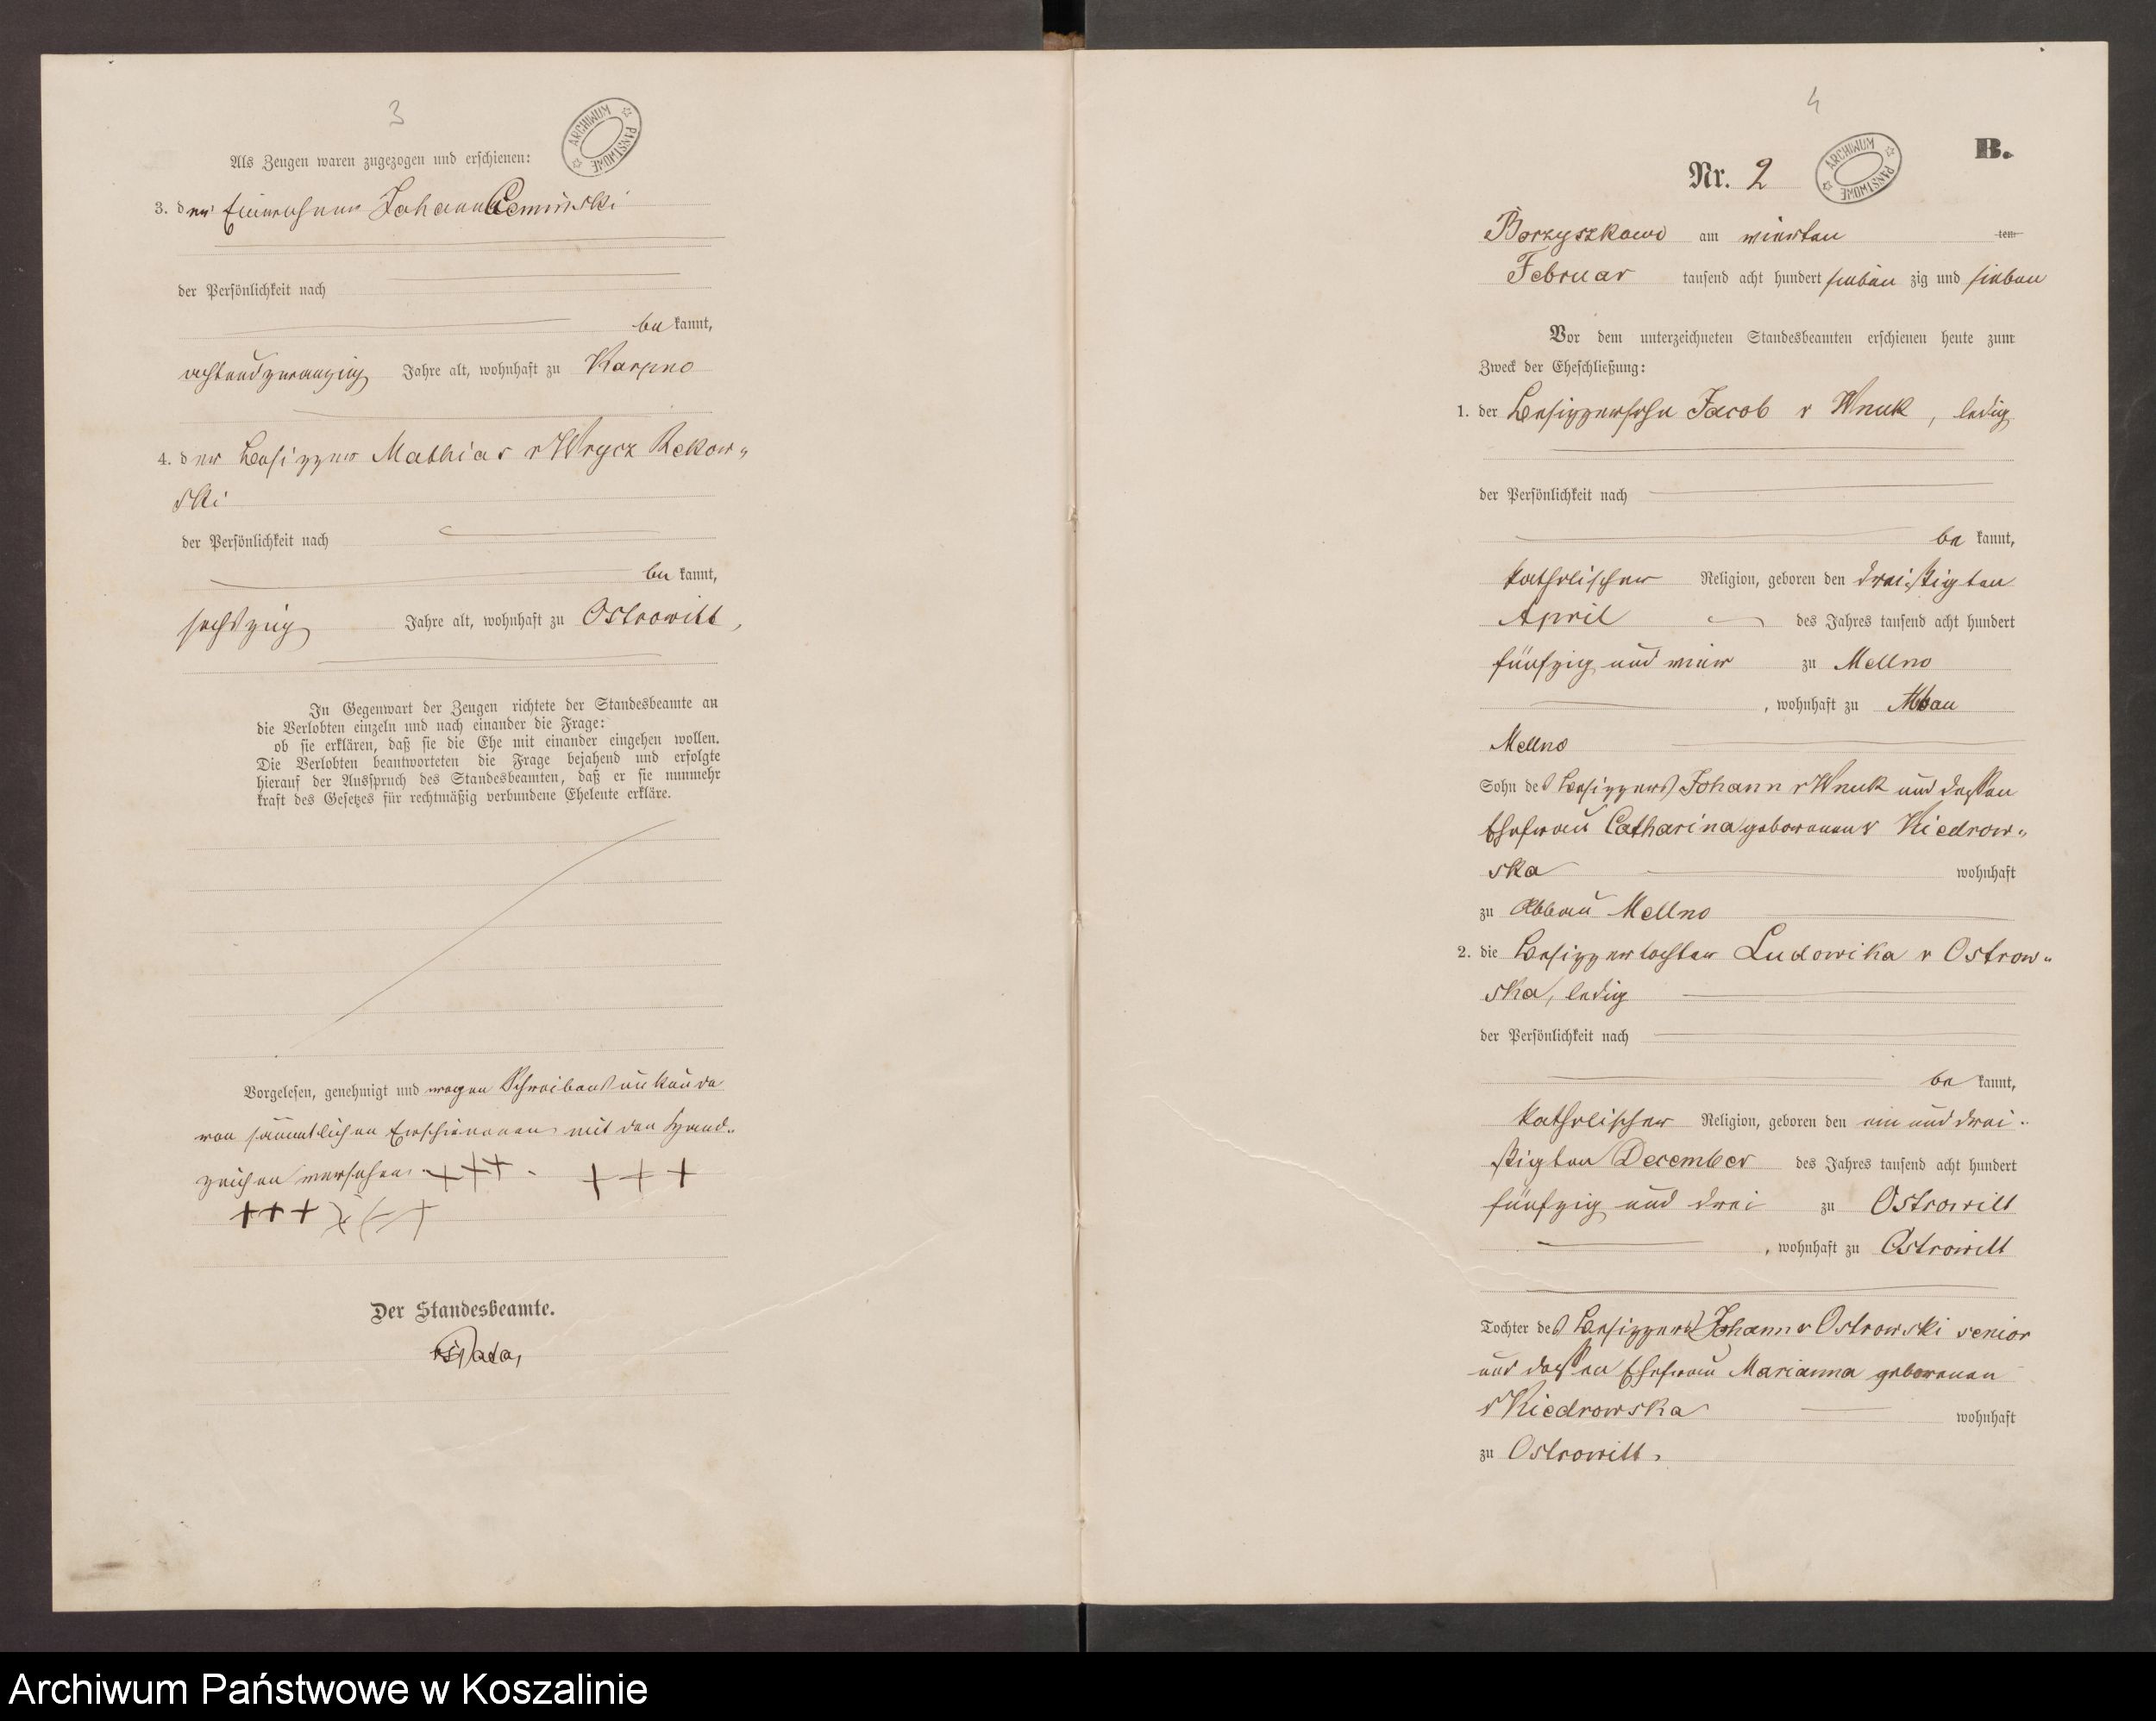 3
ARCHIWUM PAŃSTWOWE
Als Zeugen waren zugezogen und erschienen:
3. der Einwohner Johann Cemiński
der Persönlichkeit nach
be kannt,
achtundzwanzig Jahre alt, wohnhaft zu Karpno
4. der Besitzer Mathias v Wrycz Rekow-
ski
der Persönlichkeit nach
be kannt,
sechszig Jahre alt, wohnhaft zu Ostrowitt,
In Gegenwart der Zeugen richtete der Standesbeamte an
die Verlobten einzeln und nach einander die Frage:
ob sie erklären, daß sie die Ehe mit einander eingehen wollen.
Die Verlobten beantworteten die Frage bejahend und erfolgte
hierauf der Ausspruch des Standesbeamten, daß er sie nunmehr
kraft des Gesetzes für rechtmäßig verbundene Eheleute erkläre.
Vorgelesen, genehmigt und wegen Schreibensunkunde
von sämmtlichen Erschienenen mit den Hand-
zeichen versehen. +++. + + +
+++ + + +
Der Standesbeamte.
4
B.
Nr. 2
ARCHIWUM PAŃSTWOWE
Borzyszkowo am vierten ten
Februar tausend acht hundert sieben zig und sieben
Vor dem unterzeichneten Standesbeamten erschienen heute zum
Zweck der Eheschließung:
1. der Besitzersohn Jacob v Wnuk, ledig
der Persönlichkeit nach
be kannt,
katholischer Religion, geboren den dreißigten
April des Jahres tausend acht hundert
fünfzig und vier zu Mellno
, wohnhaft zu Abbau
Mellno
Sohn des Besitzers Johann v Wnuk und dessen
Ehefrau Catharina geborenen v Kiedrow-
ska wohnhaft
zu Abbau Mellno
2. die Besitzertochter Ludowika v Ostrow-
ska, ledig
der Persönlichkeit nach
be kannt,
katholischer Religion, geboren den ein und drei-
ßigten December des Jahres tausend acht hundert
fünfzig und drei zu Ostrowitt
, wohnhaft zu Ostrowitt
Tochter des Besitzers Johann v Ostrowski senior
und dessen Ehefrau Marianna geborenen
v Kiedrowska wohnhaft
zu Ostrowitt.
Archiwum Państwowe w Koszalinie